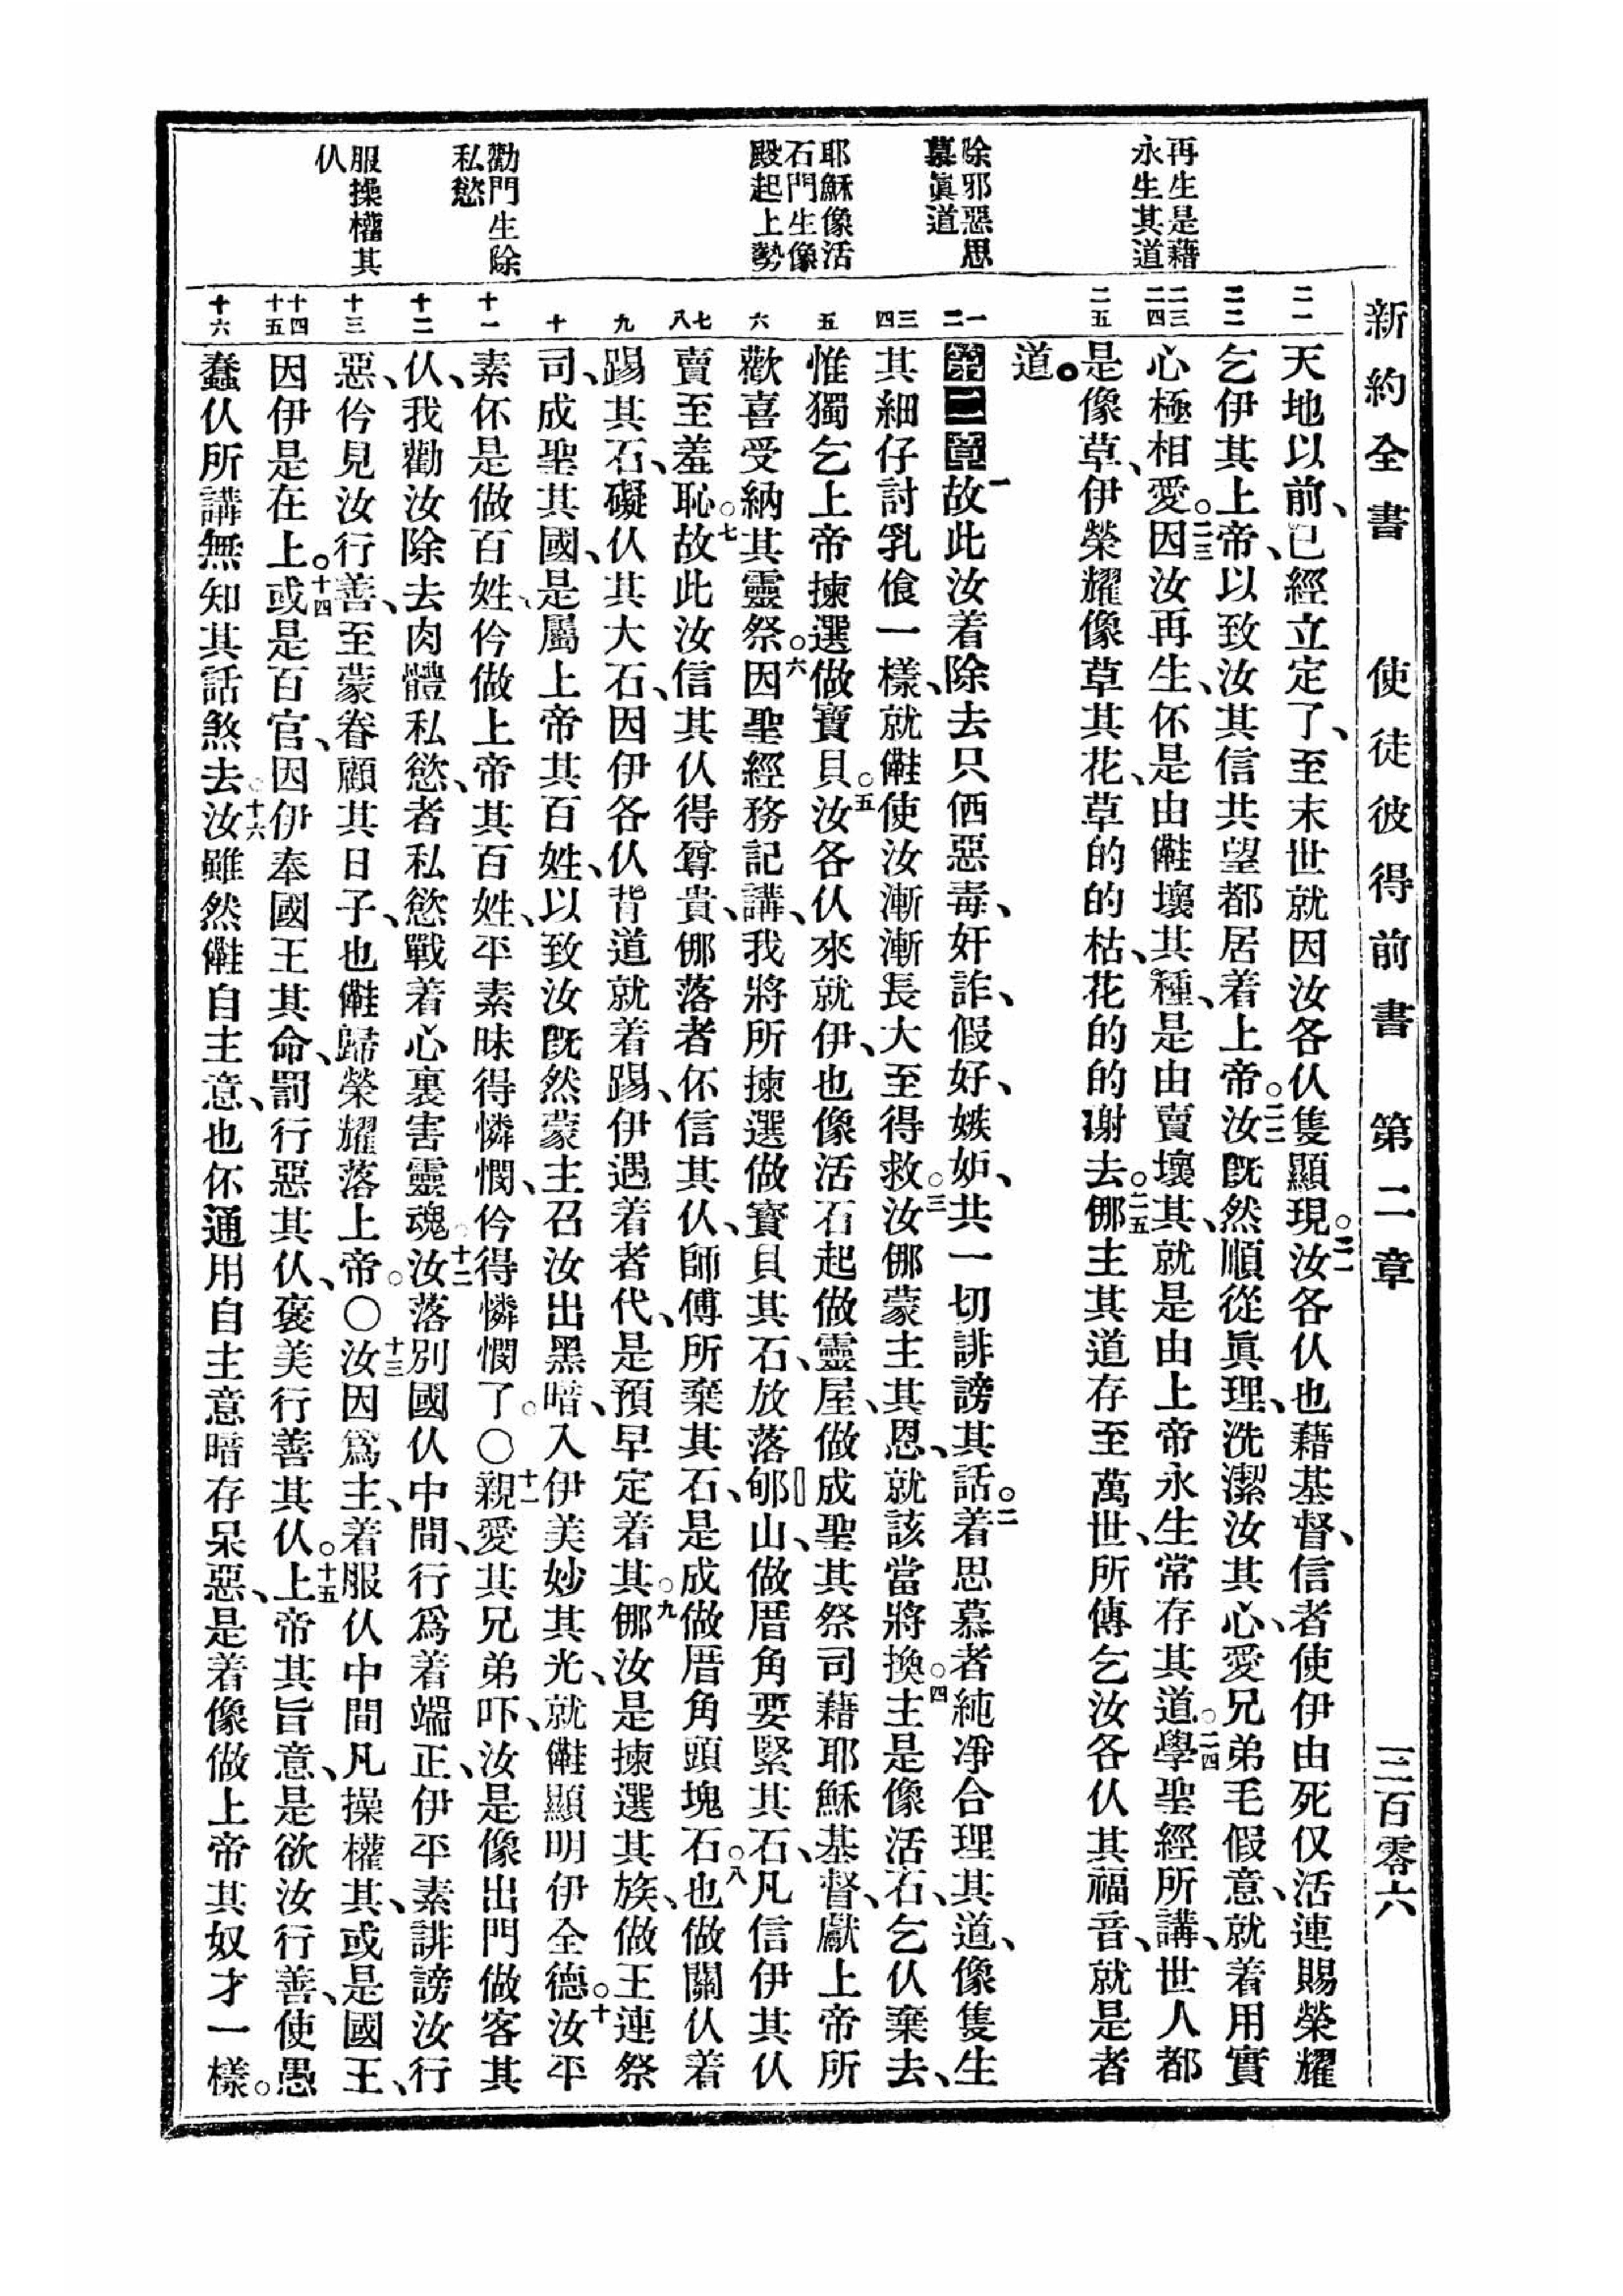 新約全書 使徒彼得前書 第二章 三百零六
再生是藉
永生其道
除邪惡思
慕眞道
耶穌像活
石門生像
殿起上勢
勸門生除
私慾
服操權其
仈
二一
二二
二三
二四
二五
一
二
三
四
五
六
七
八
九
十
十一
十二
十三
十四
十五
十六
天地以前、已經立定了、至末世就因汝各仈隻顯現。二一汝各仈也藉基督、信者使伊由死仅活連賜榮耀
乞伊其上帝、以致汝其信共望都居着上帝。二二汝旣然順從眞理、洗潔汝其心、愛兄弟毛假意、就着用實
心極相愛。二三因汝再生、伓是由壞其種、是由賣壞其、就是由上帝永生常存其道。二四學聖經所講、世人都
是像草、伊榮耀像草其花、草的的枯、花的的謝去。二五㑚主其道存至萬世、所傳乞汝各仈其福音、就是者
道。
第二章一故此汝着除去只惡毒、奸詐、假好、嫉妒、共一切誹謗其話。二着思慕者純凈合理其道、像隻生
其細仔討乳飡一樣、就使汝漸漸長大至得救。三汝㑚蒙主其恩、就該當將換主。四是像活石、乞仈棄去、
惟獨乞上帝揀選做寶貝。五汝各仈來就伊、也像活石起做靈屋、做成聖其祭司藉耶穌基督、獻上帝所
歡喜受納其靈祭。六因聖經務記講、我將所揀選做寶貝其石、放落郇山、做厝角要緊其石、凡信伊其仈
賣至羞恥。七故此汝信其仈得尊貴、㑚落者伓信其仈、師傅所棄其石、是成做厝角頭塊石。八也做關仈着
踢其石、礙仈其大石、因伊各仈背道就着踢、伊遇着者代、是預早定着其。九㑚汝是揀選其族、做王連祭
司、成聖其國、是屬上帝其百姓、以致汝旣然蒙主召汝出黑暗、入伊美妙其光、就顯明伊全德。十汝平
素伓是做百姓、仱做上帝其百姓、平素昧得憐憫、仱得憐憫了。〇十一親愛其兄弟吓、汝是像出門做客其
仈、我勸汝除去肉體私慾、者私慾戰着心裏害靈魂。十二汝落別國仈中間、行爲着端正、伊平素誹謗汝行
惡、仱見汝行善、至蒙眷顧其日子、也歸榮耀落上帝。〇十三汝因爲主、着服仈中間凡操權其、或是國王、
因伊是在上。十四或是百官、因伊奉國王其命、罰行惡其仈、褒美行善其仈。十五上帝其旨意、是欲汝行善、使愚
蠢仈所講無知其話煞去。十六汝雖然自主意、也伓通用自主意暗存呆惡、是着像做上帝其奴才一樣。